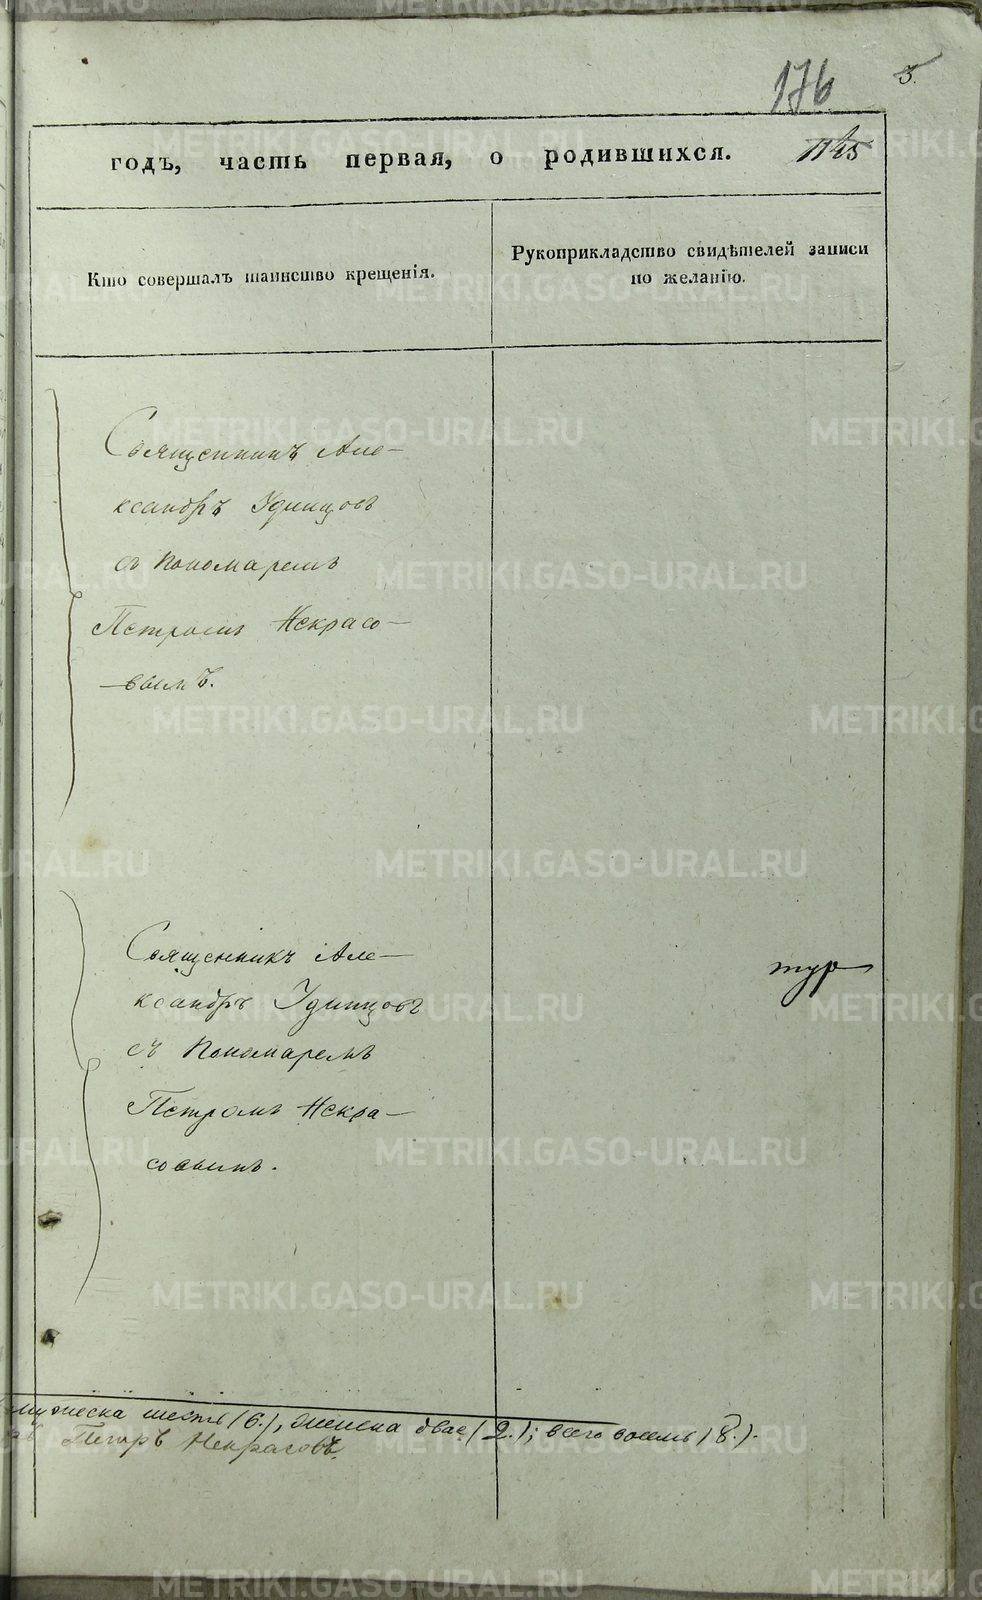 176 3.
годъ, часть первая, о родившихся. 1145
Кто совершалъ таинство крещенія.
Рукоприкладство свидѣтелей записи
по желанію.
Священникъ Але-
ксандръ Удинцовъ
съ Пономаремъ
Петромъ Некрасо-
-вымъ.
Священникъ Але-
ксандръ Удинцовъ
съ Пономаремъ
Петромъ Некра-
совымъ.
тур
мужеска шесть (6.), женска двое (2.); всего восемь (8.).
Петръ Некрасовъ.
METRIKI.GASO-URAL.RU